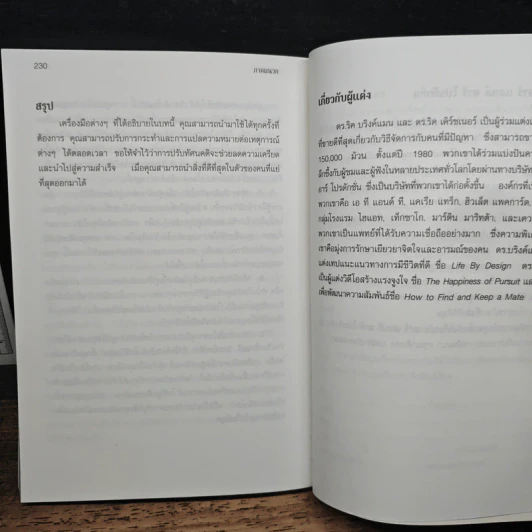 230
ภาคผนวก
สรุป
เครื่องมือต่างๆ ที่ได้อธิบายในบทนี้ คุณสามารถนำมาใช้ได้ทุกครั้งที่
ต้องการ คุณสามารถปรับการกระทำและการแปลความหมายต่อเหตุการณ์
ต่างๆ ได้ตลอดเวลา ขอให้จำไว้ว่าการปรับทัศนคติจะช่วยลดความเครียด
และนำไปสู่ความสำเร็จ เมื่อคุณสามารถนำสิ่งที่ดีที่สุดในตัวของคนที่แย่
ที่สุดออกมาได้
เกี่ยวกับผู้แต่ง
ดร.ริค บริงค์แมน และ ดร.ริค เคิร์ชเนอร์ เป็นผู้ร่วมแต่ง
ที่ขายดีที่สุดเกี่ยวกับวิธีจัดการกับคนที่มีปัญหา ซึ่งสามารถขา
150,000 ม้วน ตั้งแต่ปี 1980 พวกเขาได้ร่วมแบ่งปันคว
ลึกซึ้งกับผู้ชมและผู้ฟังในหลายประเทศทั่วโลกโดยผ่านทางบริษัท
อาร์ โปรดักชัน ซึ่งเป็นบริษัทที่พวกเขาได้ก่อตั้งขึ้น องค์กรที่เ
พวกเขาคือ เอ ที แอนด์ ที, แคเรีย แทร็ก, ฮิวเล็ต แพคการ์ด,
กลุ่มโรงแรม ไฮแอท, เท็กซาโก, มาร์ติน มาริทต้า, และเคว
พวกเขาเป็นแพทย์ที่ได้รับความเชื่อถืออย่างมาก ซึ่งความพิเ
เขาคือมุ่งการรักษาเยียวยาจิตใจและอารมณ์ของคน ดร.บริงค์แ
แต่งเทปแนะแนวทางการมีชีวิตที่ดี ชื่อ Life By Design ดร
เป็นผู้แต่งวิดีโอสร้างแรงจูงใจ ชื่อ The Happiness of Pursuit แล
เพื่อพัฒนาความสัมพันธ์ชื่อ How to Find and Keep a Mate